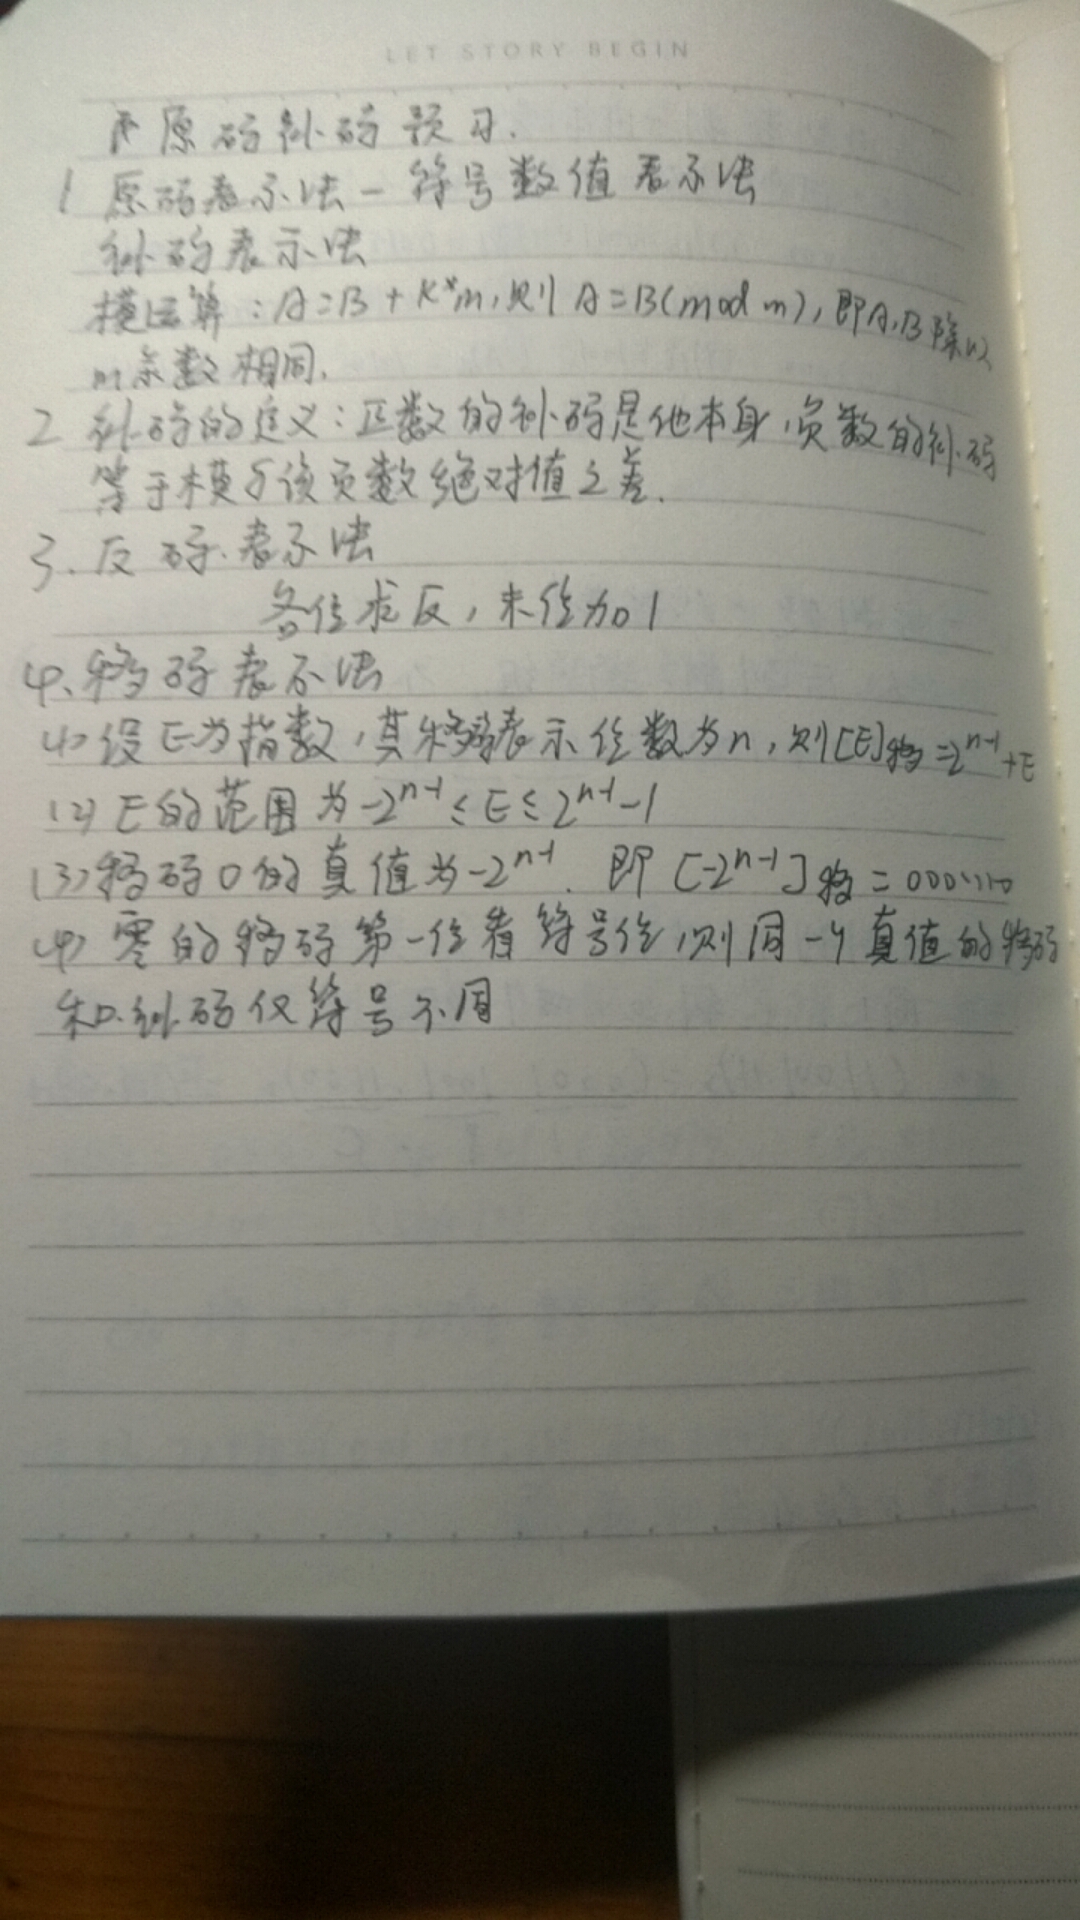 LET STORY BEGIN
原码补码预习.
1 原码表示法－符号数值表示法
补码表示法
模运算：A=B+K*m,则A=B(mod m),即A,B除以
m余数相同.
2 补码的定义：正数的补码是他本身,负数的补码
等于模与该负数绝对值之差.
3.反码表示法
各位求反,末位加1
4.移码表示法
(1)设E为指数,其移码表示位数为n,则[E]移=2^{n-1}+E
(2)E的范围为-2^{n-1}≤E≤2^{n-1}-1
(3)移码0的真值为-2^{n-1}.即[-2^{n-1}]移=000……0
(4)零的移码第一位看符号位,则同一个真值的移码
和补码仅符号不同